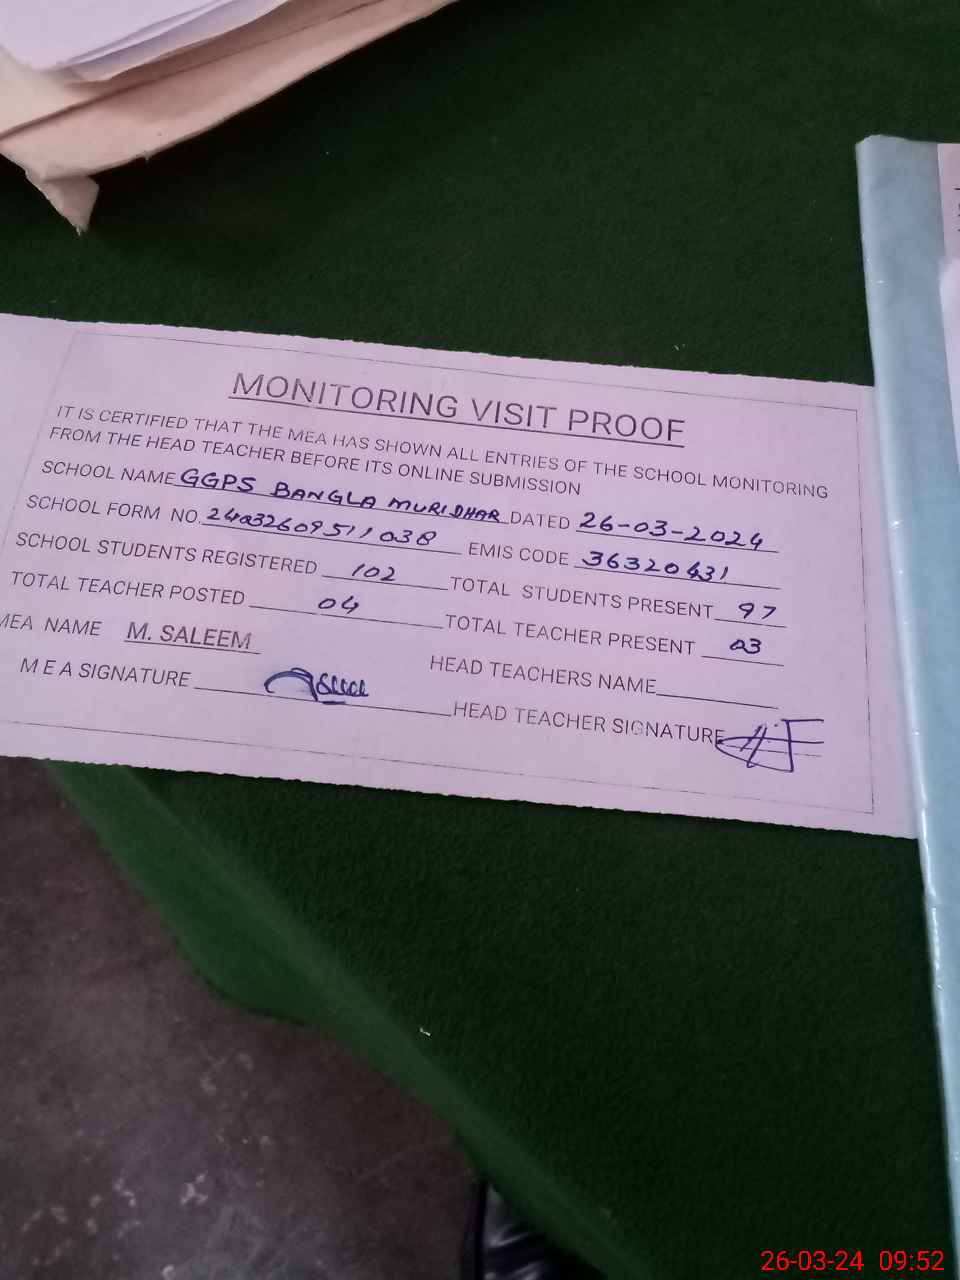 MONITORING VISIT PROOF
IT IS CERTIFIED THAT THE MEA HAS SHOWN ALL ENTRIES OF THE SCHOOL MONITORING
FROM THE HEAD TEACHER BEFORE ITS ONLINE SUBMISSION
SCHOOL NAME GGPS BANGLA MURIDHAR DATED 26-03-2024
SCHOOL FORM NO. 24032609511038 EMIS CODE 36320431
SCHOOL STUDENTS REGISTERED 102 TOTAL STUDENTS PRESENT 97
TOTAL TEACHER POSTED 04 TOTAL TEACHER PRESENT 03
MEA NAME M. SALEEM HEAD TEACHERS NAME
M E A SIGNATURE HEAD TEACHER SIGNATURE
26-03-24 09:52